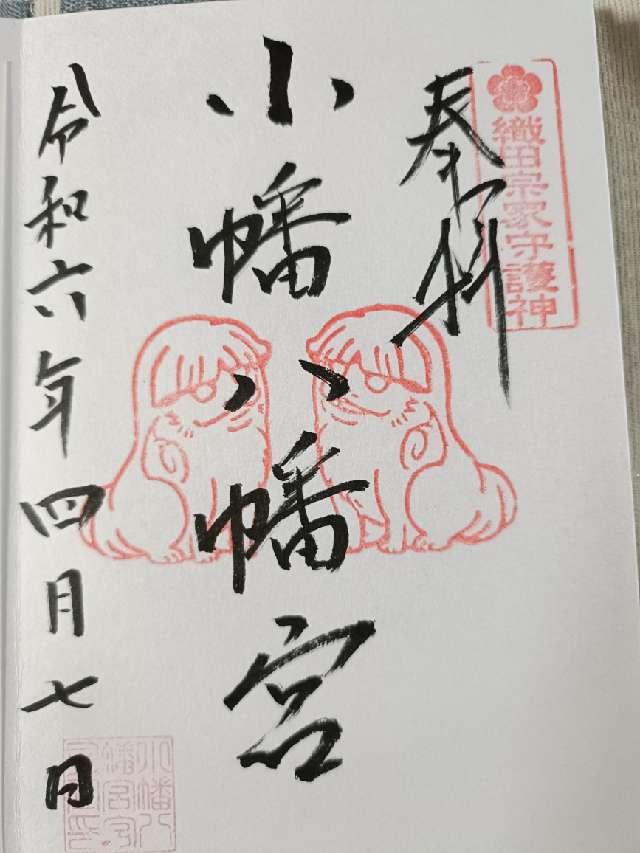 奉拝
織田宗家守護神
小幡八幡宮
令和六年四月七日